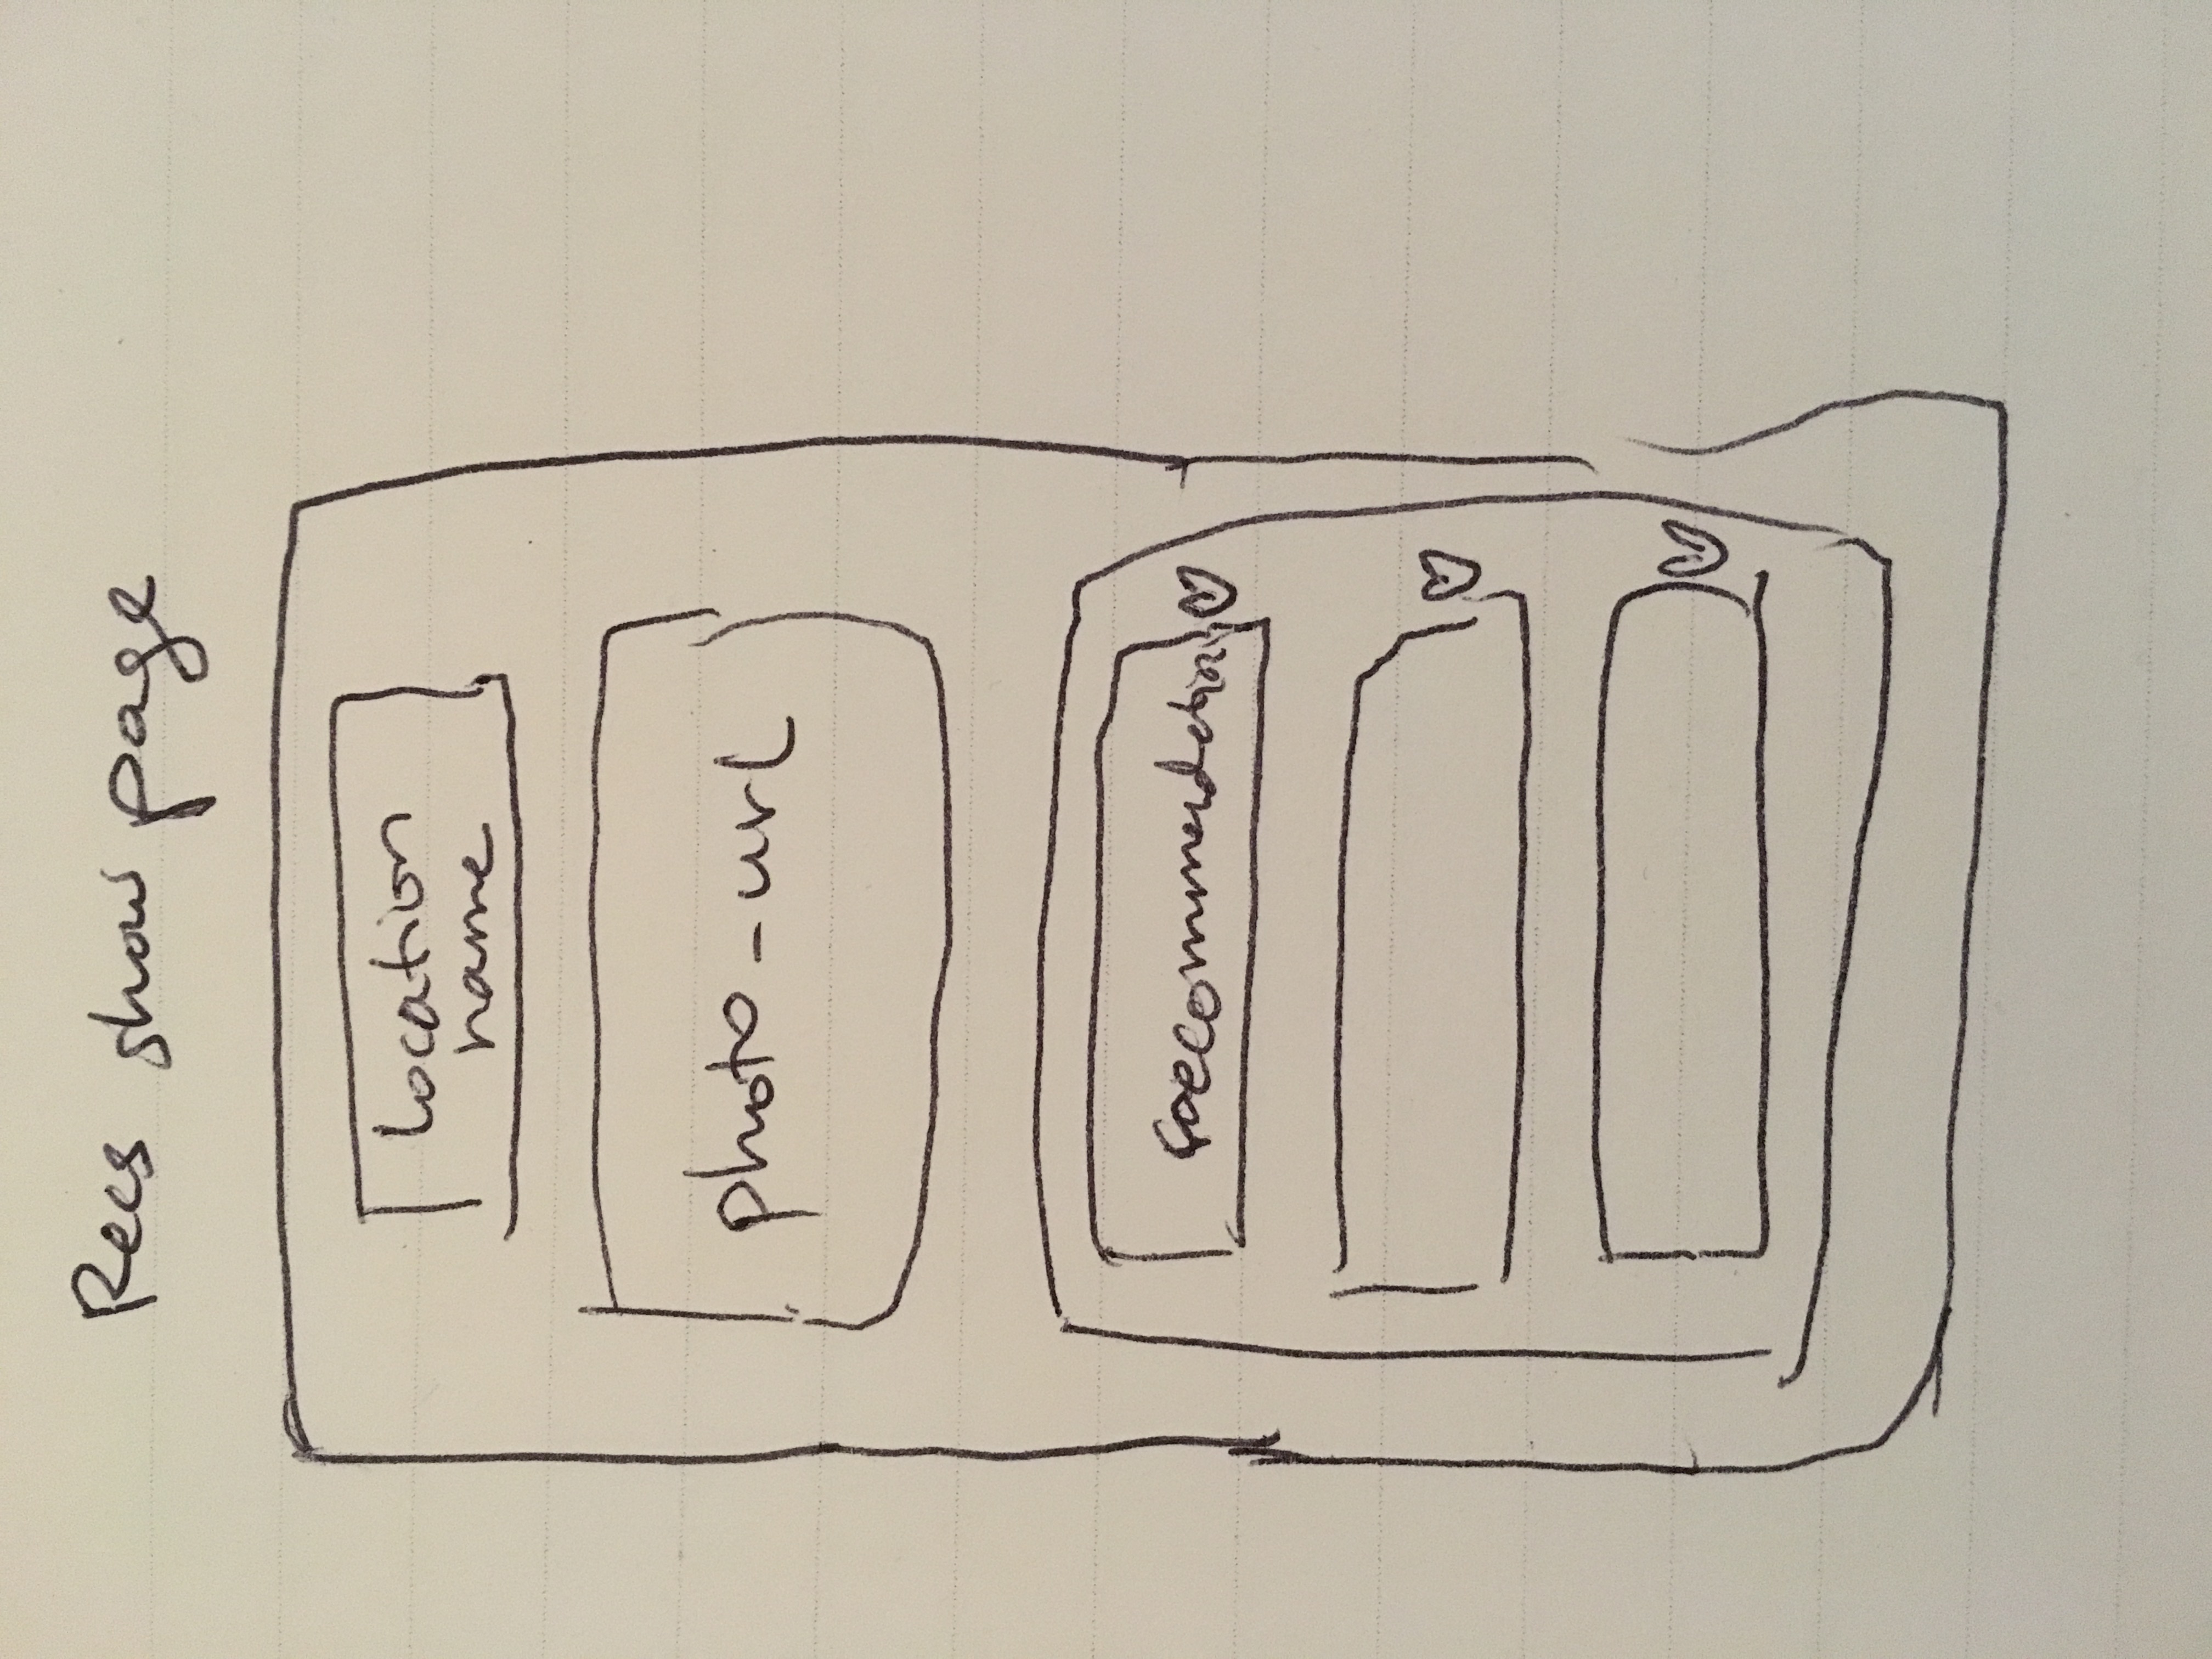 Recs show page
location
name
photo-url
recommendation